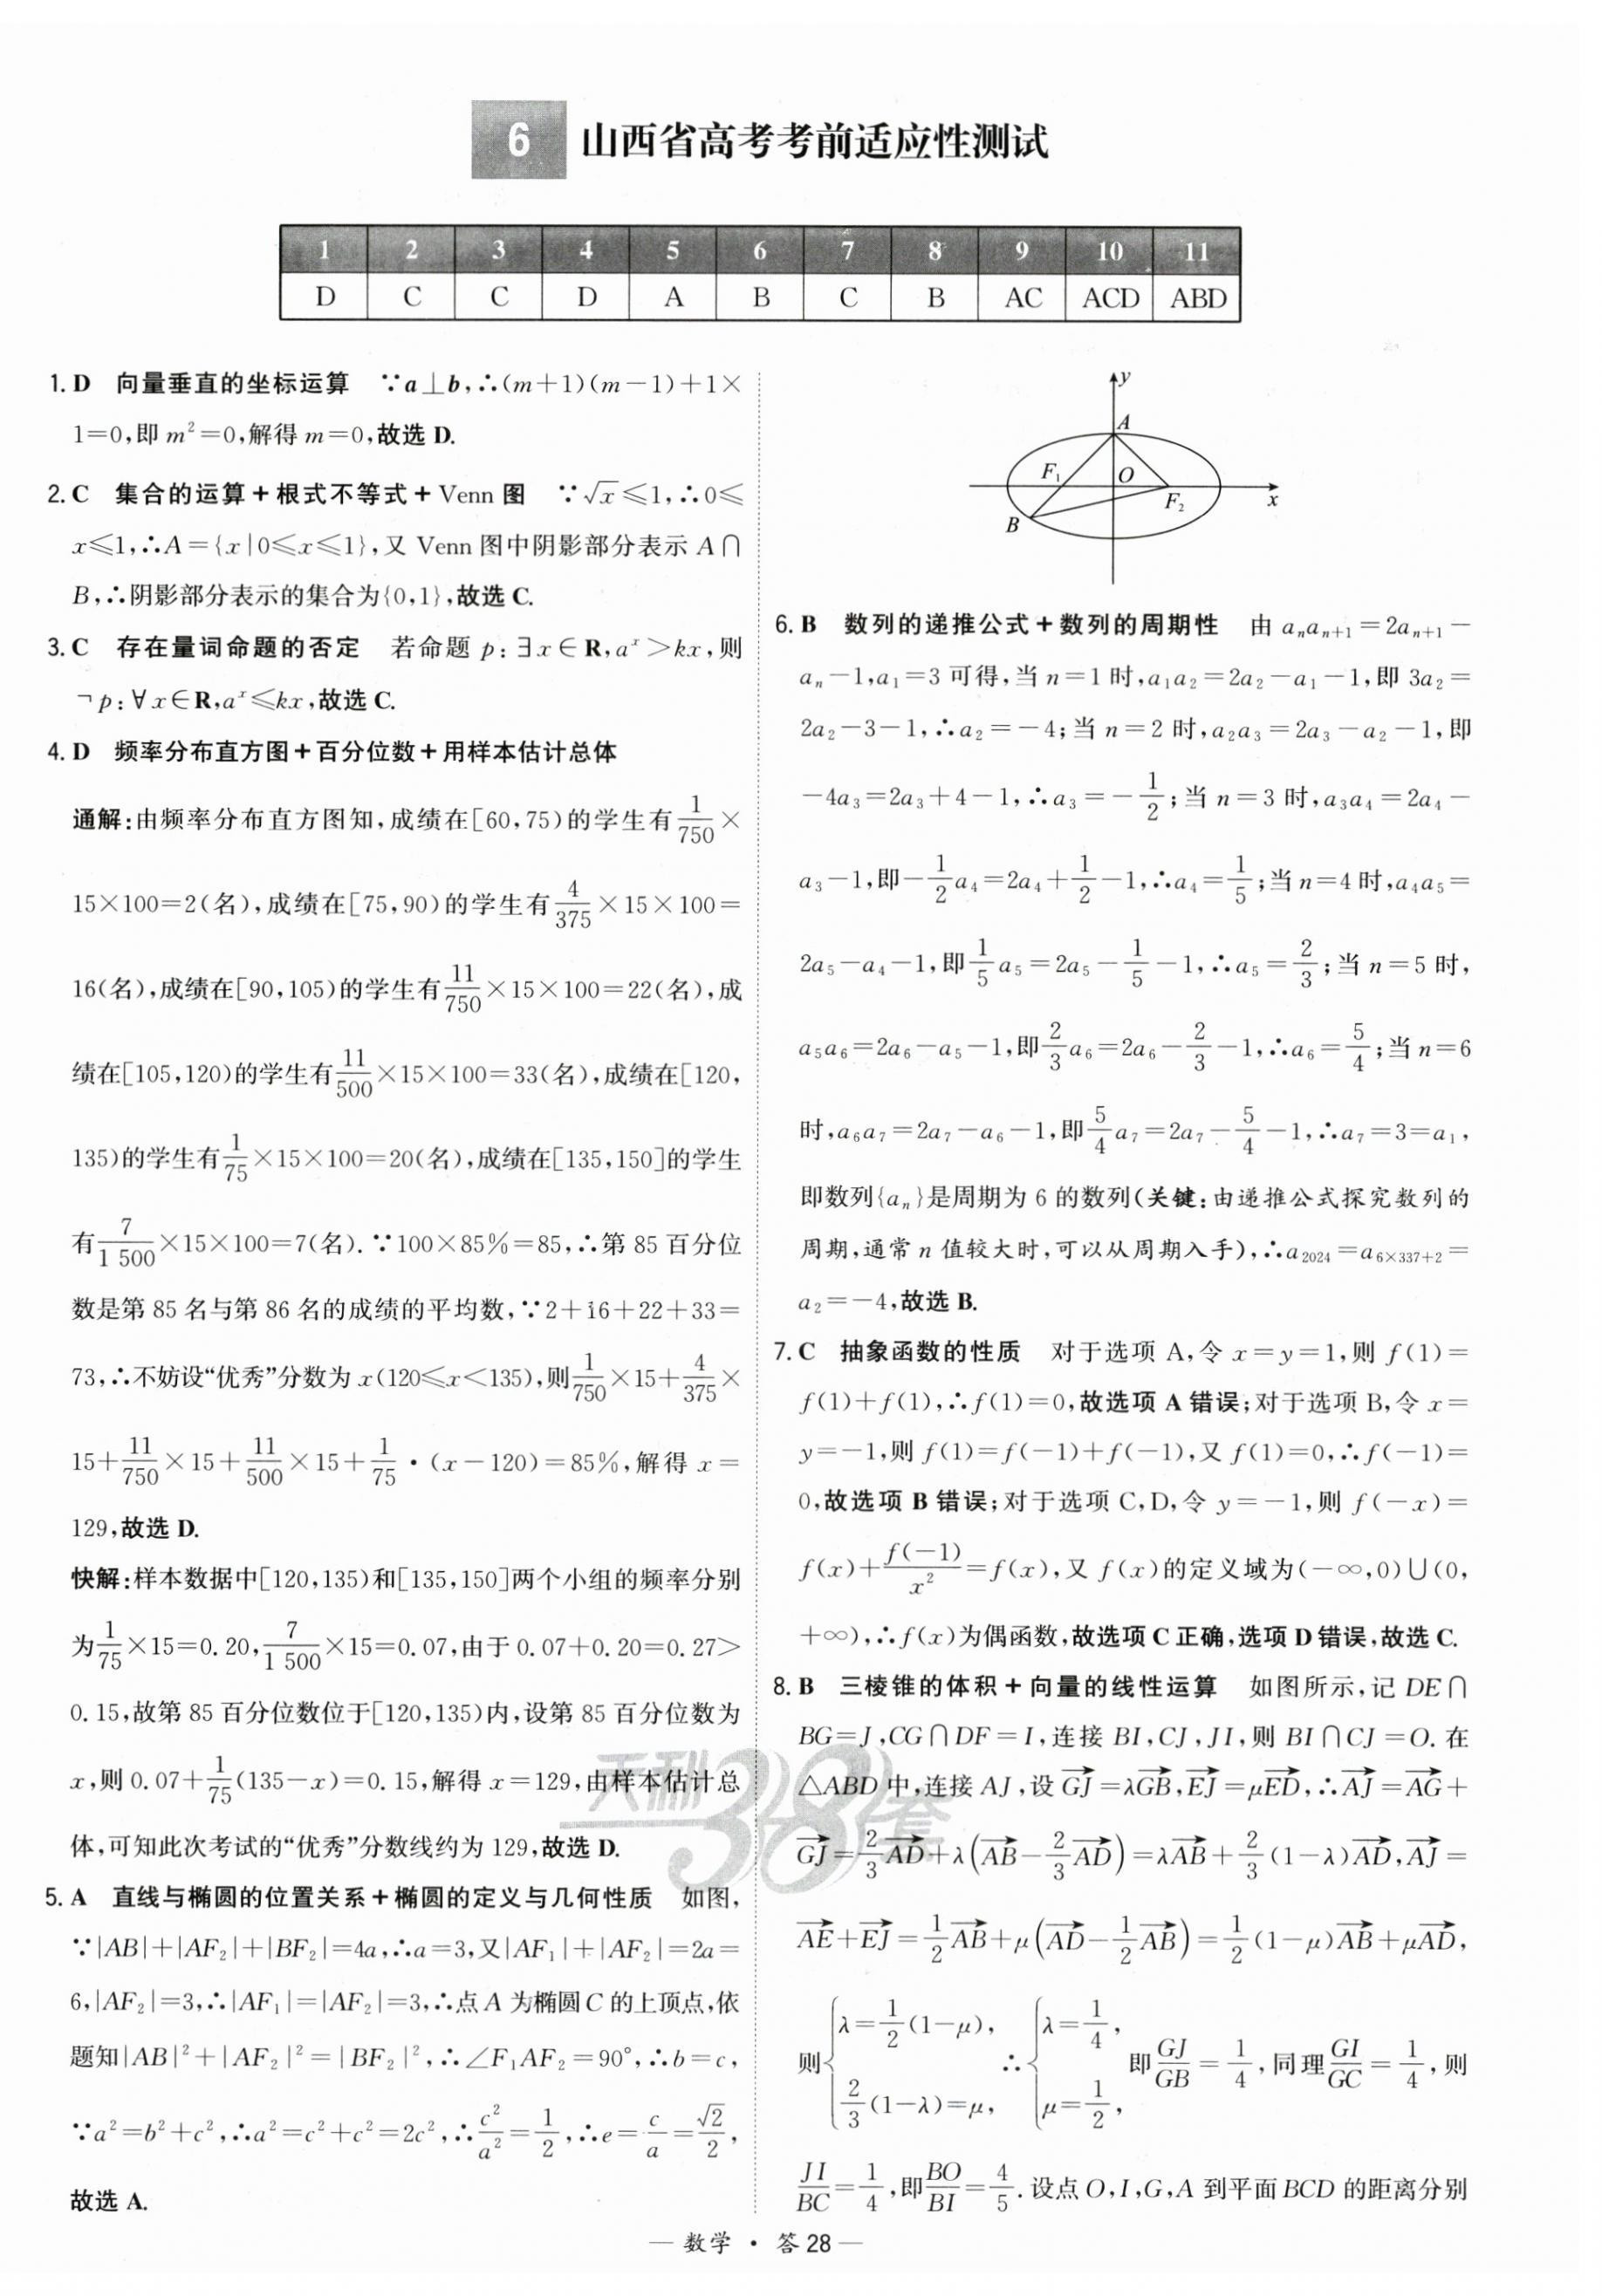 6 山西省高考考前适应性测试
1 2 3 4 5 6 7 8 9 10 11
D C C D A B C B AC ACD ABD
1. D 向量垂直的坐标运算 ∵a⊥b,∴(m+1)(m-1)+1×
1=0,即 m²=0,解得 m=0,故选 D.
2. C 集合的运算+根式不等式+Venn 图 ∵√x≤1,∴0≤
x≤1,∴A={x|0≤x≤1},又 Venn 图中阴影部分表示 A∩
B,∴阴影部分表示的集合为{0,1},故选 C.
3. C 存在量词命题的否定 若命题 p:∃x∈R,aˣ>kx,则
¬p:∀x∈R,aˣ≤kx,故选 C.
4. D 频率分布直方图+百分位数+用样本估计总体
通解:由频率分布直方图知,成绩在[60,75)的学生有1/750×
15×100=2(名),成绩在[75,90)的学生有4/375×15×100=
16(名),成绩在[90,105)的学生有11/750×15×100=22(名),成
绩在[105,120)的学生有11/500×15×100=33(名),成绩在[120,
135)的学生有1/75×15×100=20(名),成绩在[135,150]的学生
有7/1 500×15×100=7(名).∵100×85%=85,∴第 85 百分位
数是第 85 名与第 86 名的成绩的平均数,∵2+16+22+33=
73,∴不妨设“优秀”分数为 x(120≤x<135),则1/750×15+4/375×
15+11/750×15+11/500×15+1/75·(x-120)=85%,解得 x=
129,故选 D.
快解:样本数据中[120,135)和[135,150]两个小组的频率分别
为1/75×15=0.20,7/1 500×15=0.07,由于 0.07+0.20=0.27>
0.15,故第 85 百分位数位于[120,135)内,设第 85 百分位数为
x,则 0.07+1/75(135-x)=0.15,解得 x=129,由样本估计总
体,可知此次考试的“优秀”分数线约为 129,故选 D.
5. A 直线与椭圆的位置关系+椭圆的定义与几何性质 如图,
∵|AB|+|AF₂|+|BF₂|=4a,∴a=3,又|AF₁|+|AF₂|=2a=
6,|AF₂|=3,∴|AF₁|=|AF₂|=3,∴点 A 为椭圆 C 的上顶点,依
题知|AB|²+|AF₂|²=|BF₂|²,∴∠F₁AF₂=90°,∴b=c,
∵a²=b²+c²,∴a²=c²+c²=2c²,∴c²/a²=1/2,∴e=c/a=√2/2,
故选 A.
y
A
F₁
O
F₂
x
B
6. B 数列的递推公式+数列的周期性 由 aₙaₙ₊₁=2aₙ₊₁-
aₙ-1,a₁=3 可得,当 n=1 时,a₁a₂=2a₂-a₁-1,即 3a₂=
2a₂-3-1,∴a₂=-4;当 n=2 时,a₂a₃=2a₃-a₂-1,即
-4a₃=2a₃+4-1,∴a₃=-1/2;当 n=3 时,a₃a₄=2a₄-
a₃-1,即-1/2a₄=2a₄+1/2-1,∴a₄=1/5;当 n=4 时,a₄a₅=
2a₅-a₄-1,即1/5a₅=2a₅-1/5-1,∴a₅=2/3;当 n=5 时,
a₅a₆=2a₆-a₅-1,即2/3a₆=2a₆-2/3-1,∴a₆=5/4;当 n=6
时,a₆a₇=2a₇-a₆-1,即5/4a₇=2a₇-5/4-1,∴a₇=3=a₁,
即数列{aₙ}是周期为 6 的数列(关键:由递推公式探究数列的
周期,通常 n 值较大时,可以从周期入手),∴a₂₀₂₄=a₆ₓ₃₃₇₊₂=
a₂=-4,故选 B.
7. C 抽象函数的性质 对于选项 A,令 x=y=1,则 f(1)=
f(1)+f(1),∴f(1)=0,故选项 A 错误;对于选项 B,令 x=
y=-1,则 f(1)=f(-1)+f(-1),又 f(1)=0,∴f(-1)=
0,故选项 B 错误;对于选项 C,D,令 y=-1,则 f(-x)=
f(x)+f(-1)/x²=f(x),又 f(x)的定义域为(-∞,0)∪(0,
+∞),∴f(x)为偶函数,故选项 C 正确,选项 D 错误,故选 C.
8. B 三棱锥的体积+向量的线性运算 如图所示,记 DE∩
BG=J,CG∩DF=I,连接 BI,CJ,JI,则 BI∩CJ=O.在
△ABD 中,连接 AJ,设 GJ→=λGB→,EJ→=μED→,∴AJ→=AG→+
GJ→=2/3AD→+λ(AB→-2/3AD→)=λAB→+2/3(1-λ)AD→,AJ→=
AE→+EJ→=1/2AB→+μ(AD→-1/2AB→)=1/2(1-μ)AB→+μAD→,
则{λ=1/2(1-μ), 2/3(1-λ)=μ, ∴{λ=1/4, μ=1/2, 即GJ/GB=1/4,同理GI/GC=1/4,则
JI/BC=1/4,即BO/BI=4/5.设点 O,I,G,A 到平面 BCD 的距离分别
天利38套
— 数学 · 答28 —